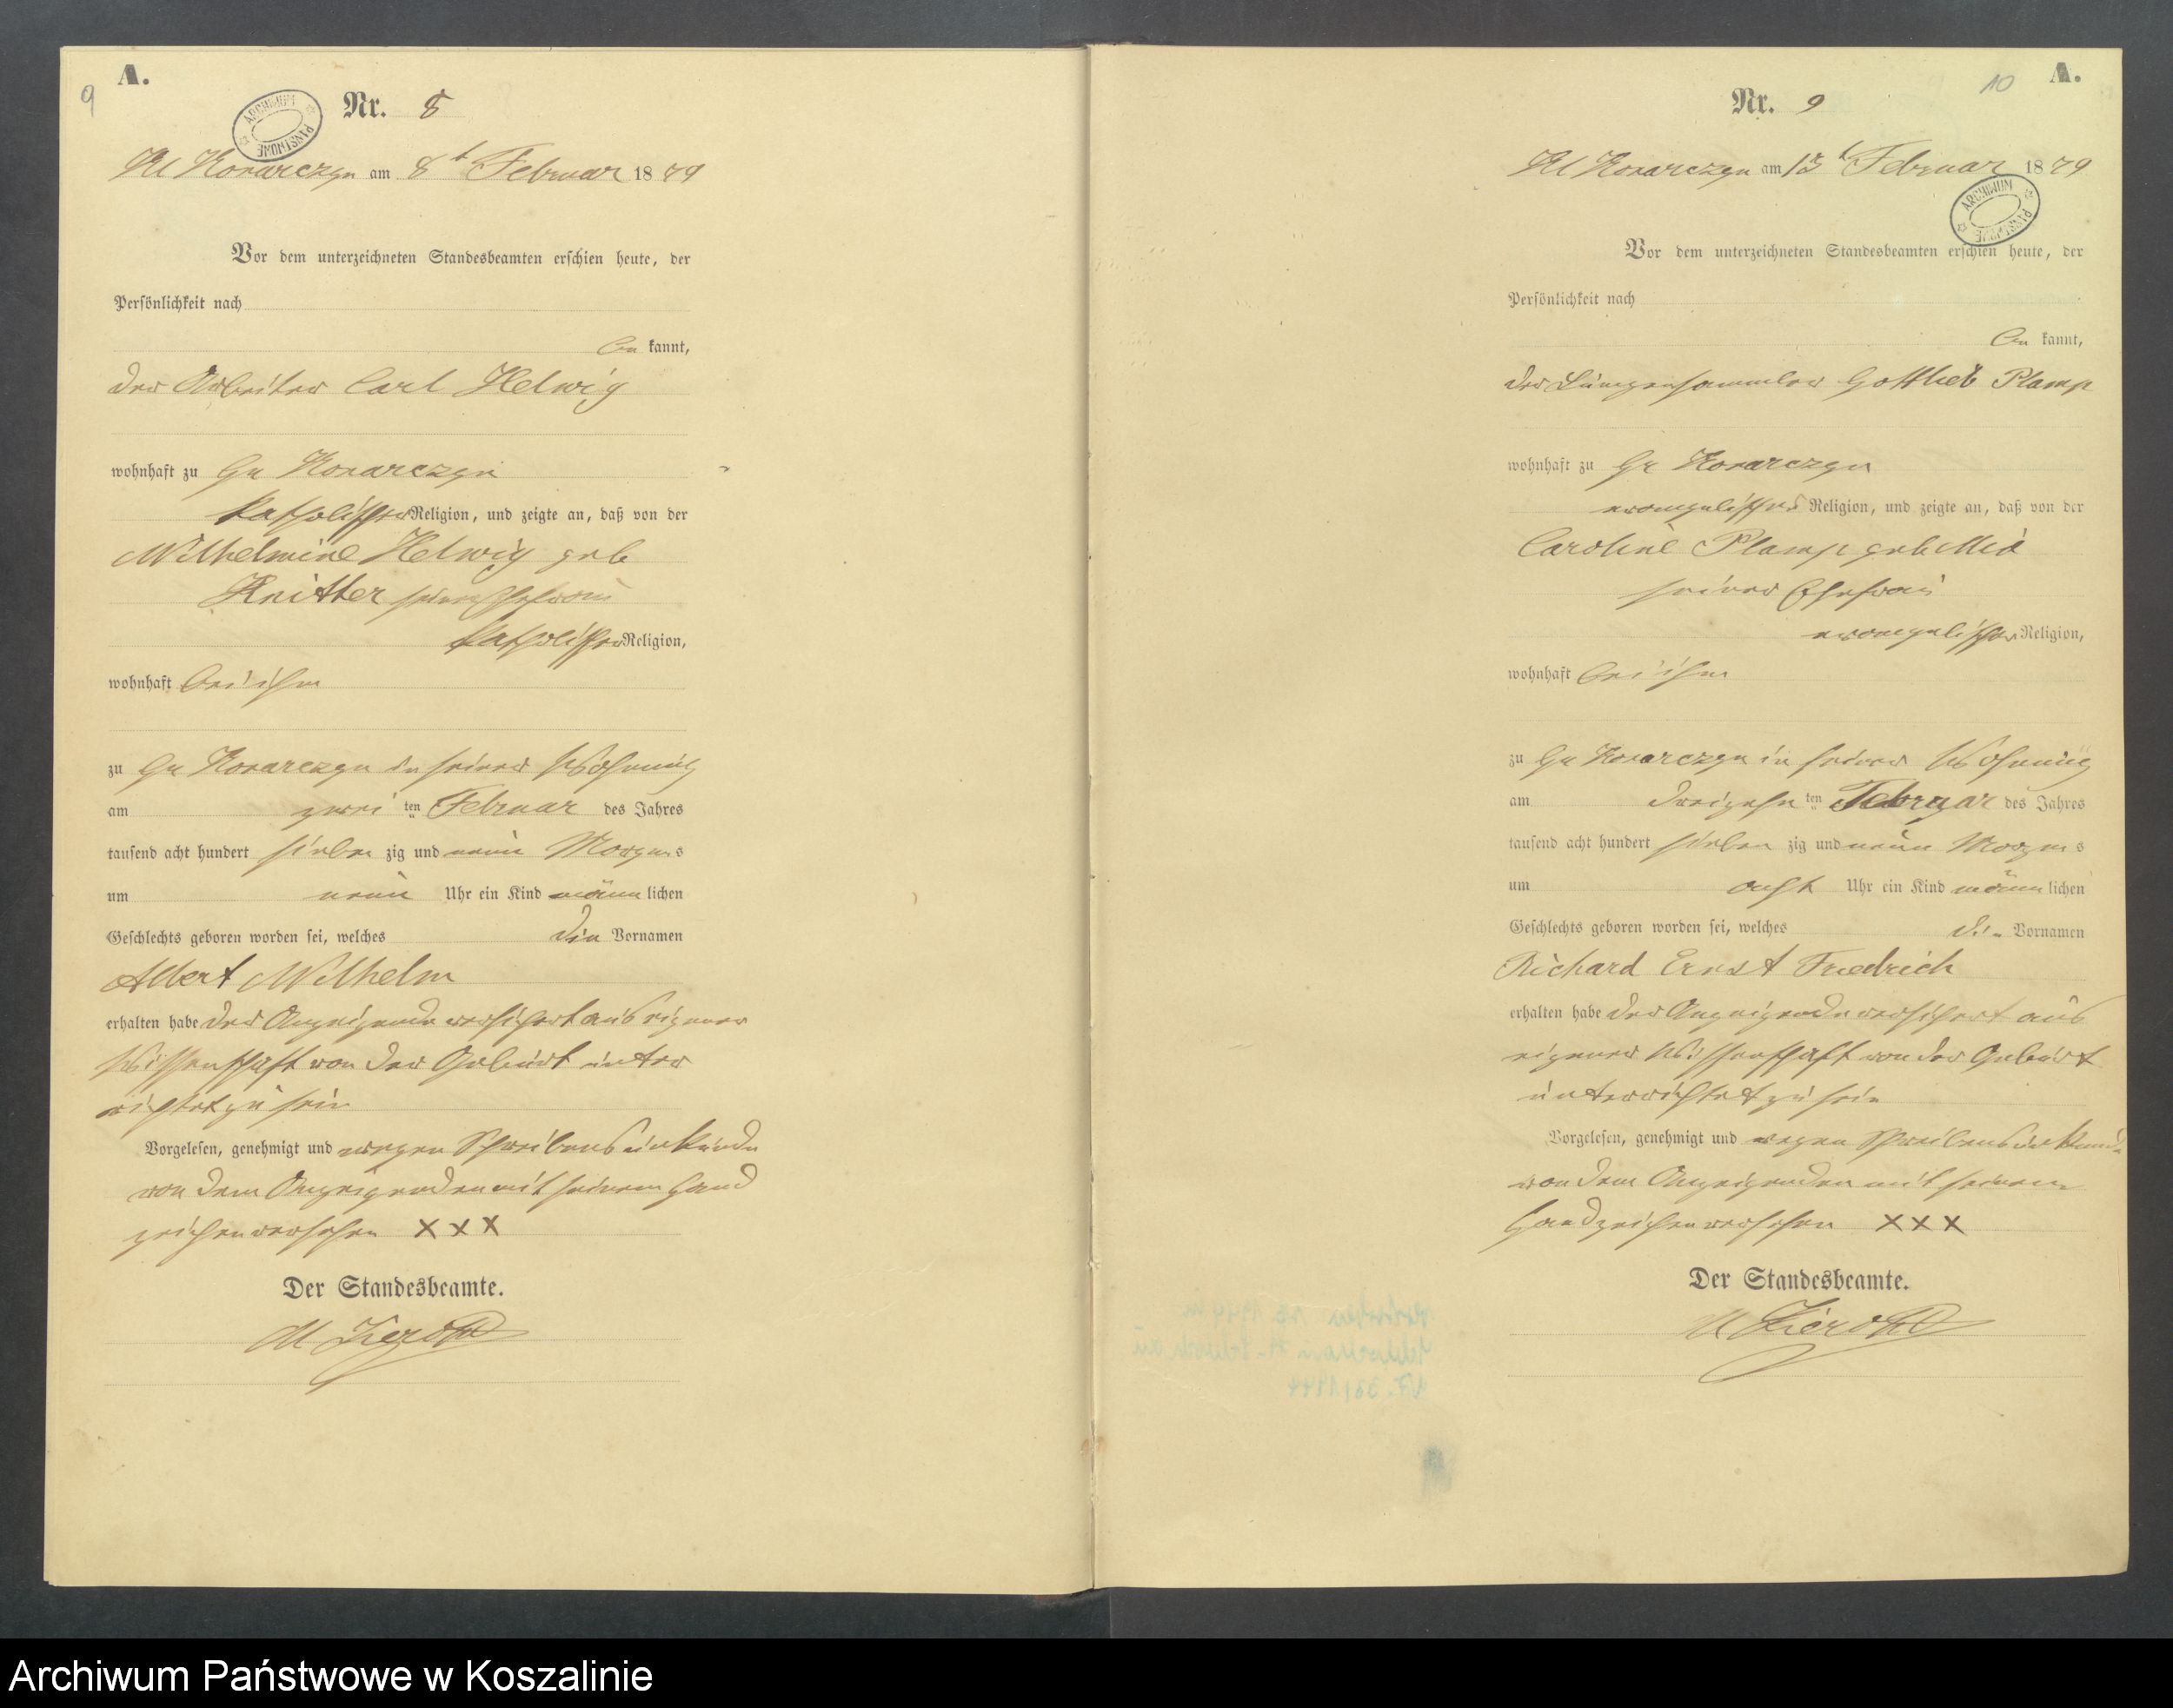 A.
9
ARCHIWUM PAŃSTWOWE
Nr. 8
Kl Konarczyn am 8t Februar 1879
Vor dem unterzeichneten Standesbeamten erschien heute, der
Persönlichkeit nach
be kannt,
der Arbeiter Carl Helwig
wohnhaft zu Gr Konarczyn
katholischer Religion, und zeigte an, daß von der
Wilhelmine Helwig geb
Knitter seiner Ehefrau
katholischer Religion,
wohnhaft bei ihm
zu Gr Konarczyn in seiner Wohnung
am zwei ten Februar des Jahres
tausend acht hundert sieben zig und neun Morgens
um neun Uhr ein Kind männ lichen
Geschlechts geboren worden sei, welches die Vornamen
Albert Wilhelm
erhalten habe der Anzeigende versichert aus eigener
Wissenschaft von der Geburt unter
richtet zu sein
Vorgelesen, genehmigt und wegen Schreibensunkunde
von dem Anzeigenden mit seinem Hand
zeichen versehen XXX
Der Standesbeamte.
A.
10
Nr. 9
Kl Konarczyn am 13t Februar 1879
ARCHIWUM PAŃSTWOWE
Vor dem unterzeichneten Standesbeamten erschien heute, der
Persönlichkeit nach
be kannt,
der Lumpensammler Gottlieb Plamp
wohnhaft zu Gr Konarczyn
evangelischer Religion, und zeigte an, daß von der
Caroline Plamp geb
seiner Ehefrau
evangelischer Religion,
wohnhaft bei ihm
zu Gr Konarczyn in seiner Wohnung
am dreizehn ten Februar des Jahres
tausend acht hundert sieben zig und neun Morgens
um acht Uhr ein Kind männ lichen
Geschlechts geboren worden sei, welches die Vornamen
Richard Ernst Friedrich
erhalten habe der Anzeigende versichert aus
eigener Wissenschaft von der Geburt
unterrichtet zu sein
Vorgelesen, genehmigt und wegen Schreibensunkunde
von dem Anzeigenden mit seinem
Handzeichen versehen XXX
Der Standesbeamte.
Archiwum Państwowe w Koszalinie